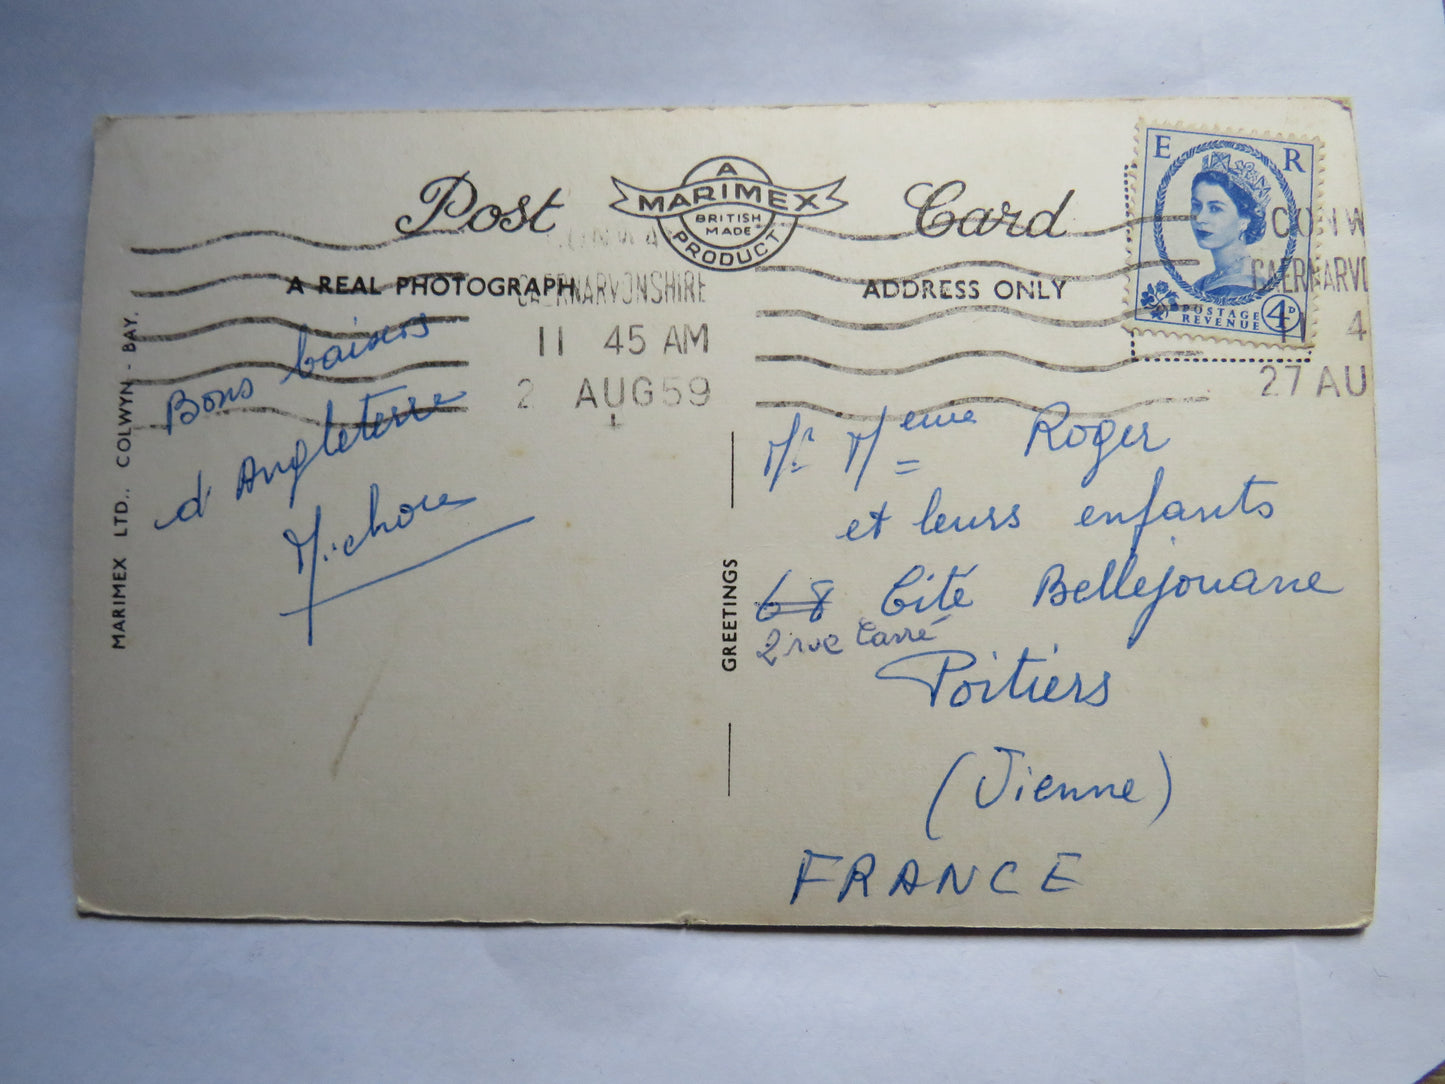 Post Card
A
MARIMEX
BRITISH
MADE
PRODUCT
A REAL PHOTOGRAPH
ADDRESS ONLY
E R
POSTAGE
REVENUE
4D
CONWA
CAERNARVONSHIRE
11 45 AM
2 AUG 59
CONW
CAERNARVO
11 4
27 AU
MARIMEX LTD., COLWYN - BAY.
Bons baisers
d'Angleterre
GREETINGS
Mr Meme Roger
et leurs enfants
68 Cité Bellejouane
2 rue Carré
Poitiers
(Vienne)
FRANCE